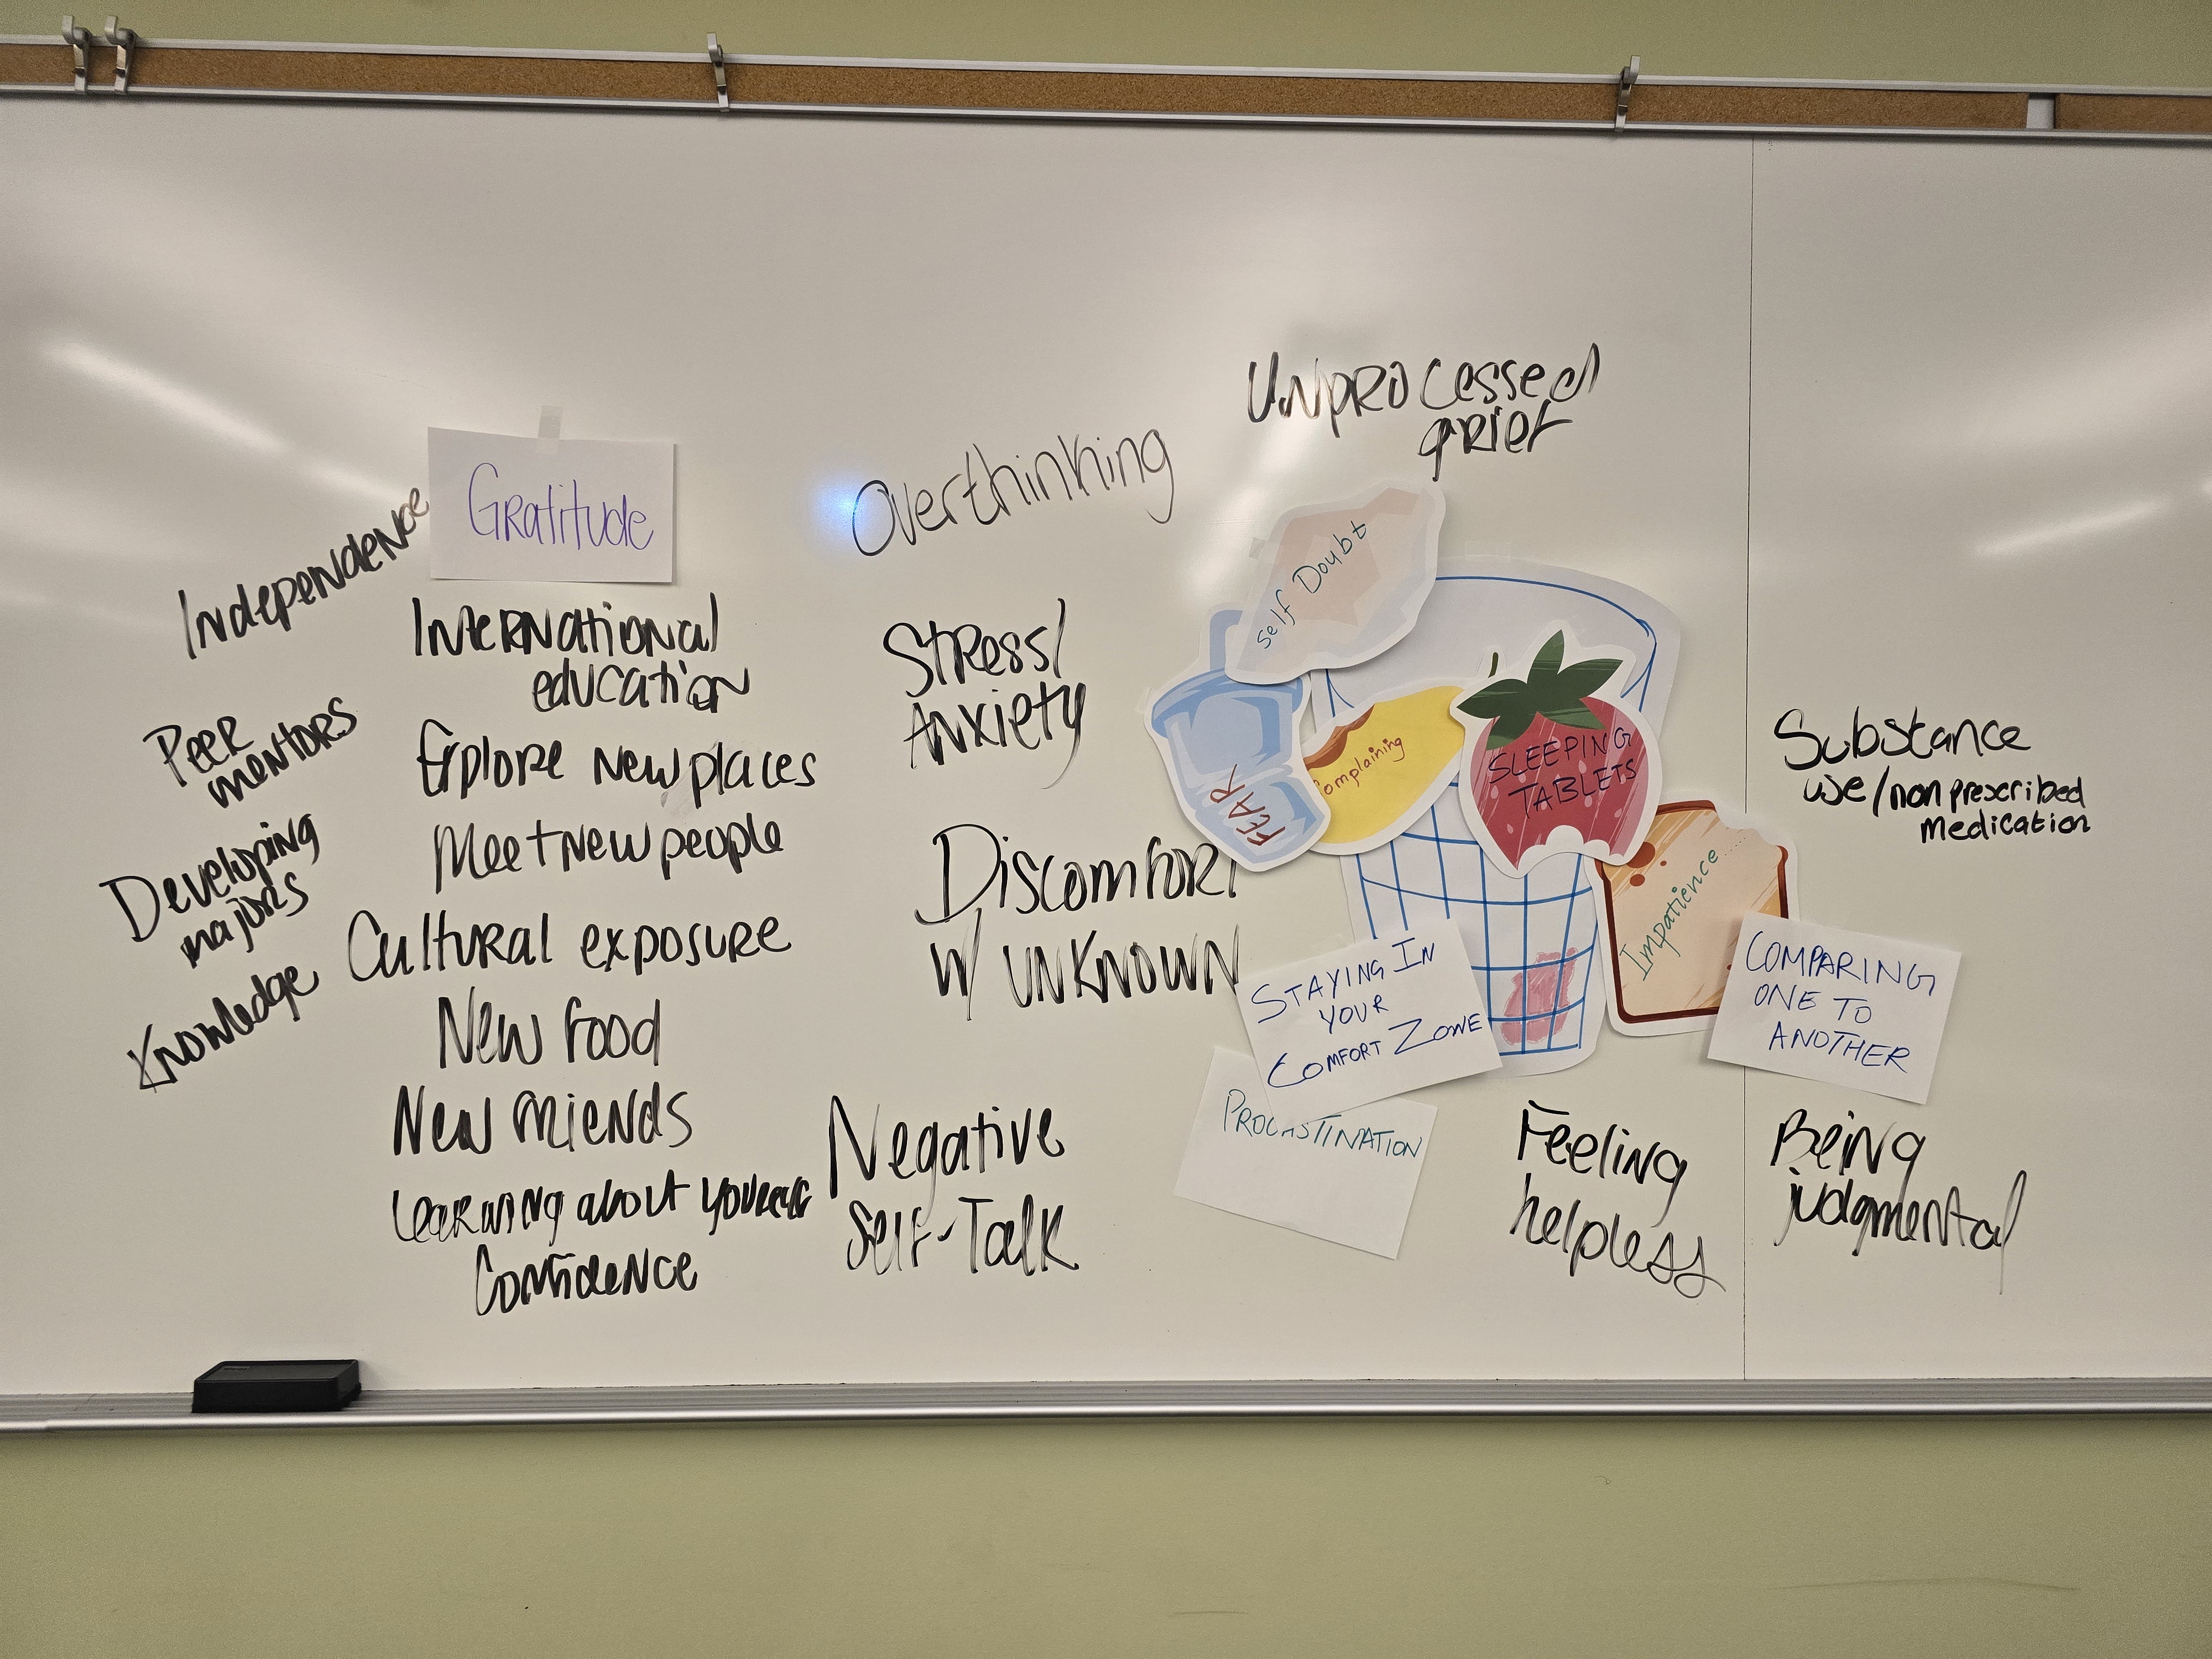 Gratitude
Independence
International
education
Peer
mentors
Explore New places
Meet New people
Developing
majors
Cultural exposure
Knowledge
New food
New friends
Learning about yourself
Confidence
Overthinking
Stress/
Anxiety
Discomfort
w/ unknown
Negative
Self-Talk
Unprocessed
grief
Self Doubt
FEAR
Complaining
SLEEPING
TABLETS
Impatience
STAYING IN
YOUR
COMFORT ZONE
PROCASTINATION
COMPARING
ONE TO
ANOTHER
Substance
use/non prescribed
medication
Feeling
helpless
Being
judgmental